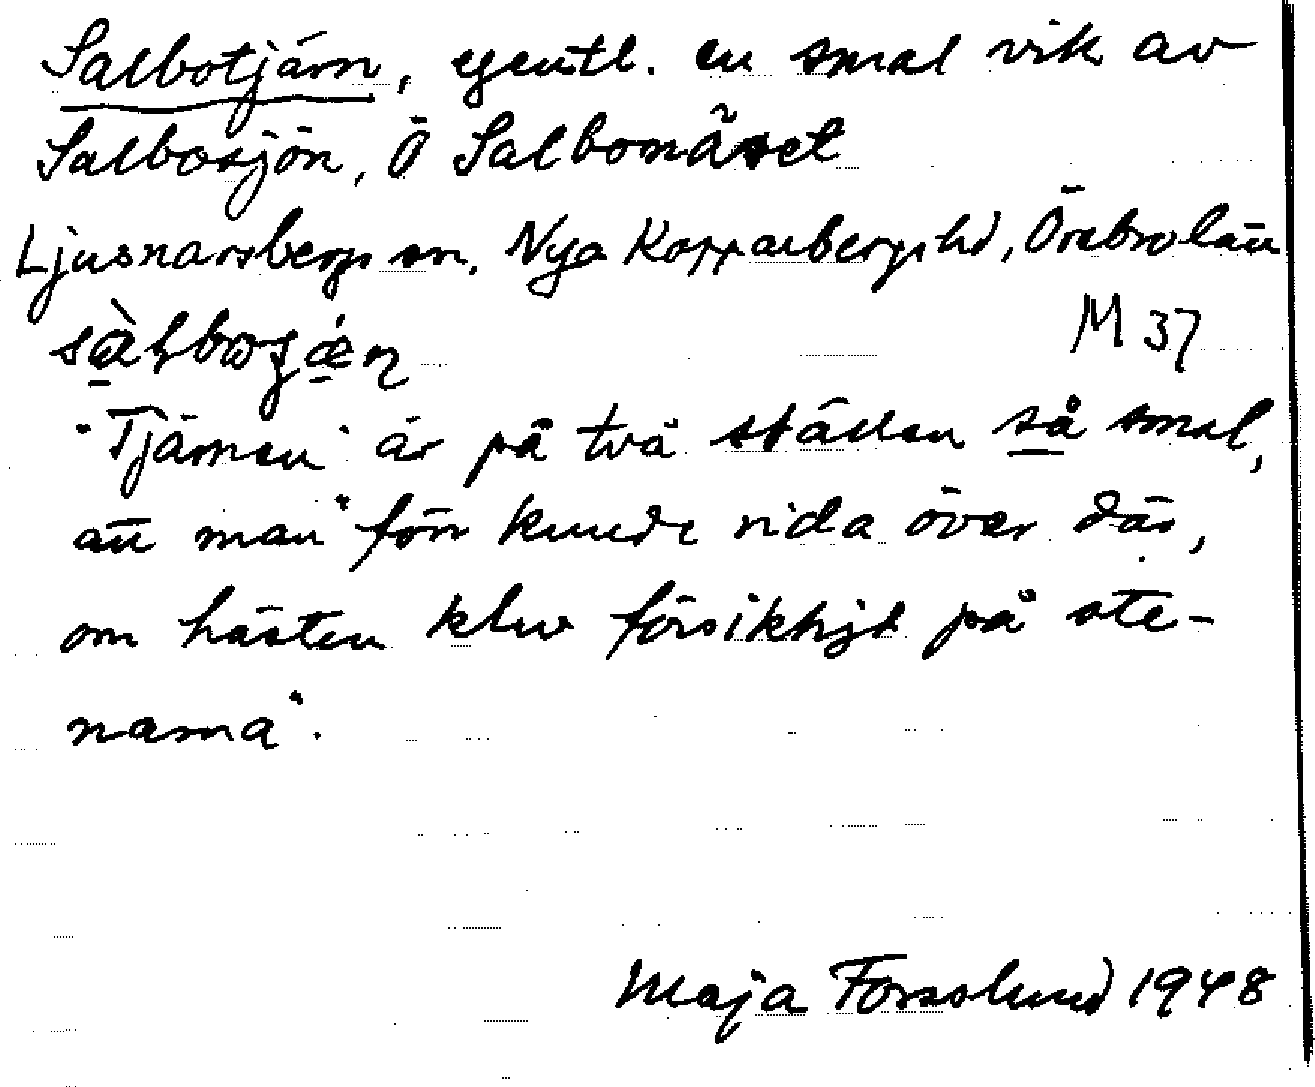 Salbotjärn, egentl. en smal vik av
Salbosjön, Ö Salbonäset
Ljusnarsbergs sn. Nya Kopparbergs hd, Örebro län
M 37
"Tjärnen" är på två ställen så smal,
att man "förr kunde rida över där,
om hästen klev försiktigt på ste-
narna".
Maja Forsslund 1948